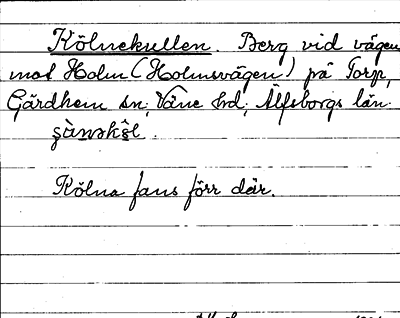 Kölnekullen. Berg vid vägen
mot Holm (Holmsvägen) på Torp,
Gärdhem sn, Väne hd, Älfsborgs län.
Kölna fans förr där.